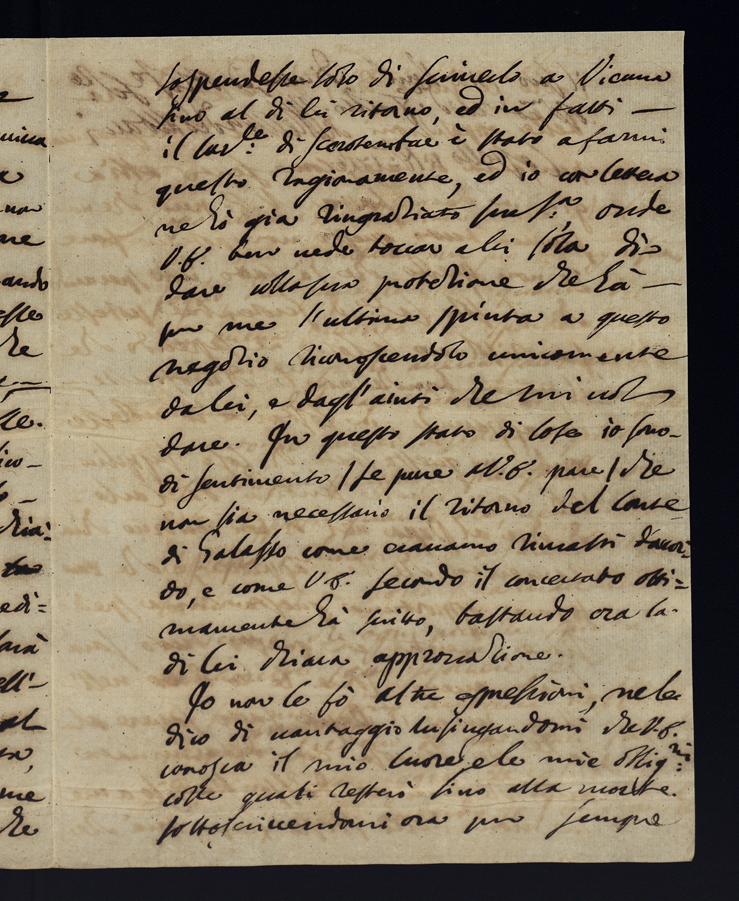 sospendesse solo di scriverlo a Vienna
sino al di lei ritorno, ed in fatti —
il di è stato a farmi
questo ragionamento, ed io con lettera
ne hò già ringraziato onde
V.E. ben vede toccar a lei sola di
dare alla sua protezione che hà —
per me l'ultima spinta a questo
negozio riconoscendolo unicamente
da lei, e dagl'aiuti che mi vol
dare. In questo stato di cose io sono
di sentimento / se pure a V.E. pare / che
non sia necessario il ritorno del Conte
di Galasso come eravamo rimasti d'accor=
do, e come V.E. secondo il concertato otti=
mamente hà scritto, bastando ora la
di lei chiara approvazione.
Io non le fò altre espressioni, ne le
dico di vantaggio lusingandomi che V.E.
conosca il mio cuore, e le mie oblig.ni:
colle quali resterò sino alla morte.
sottoscrivendomi ora per sempre